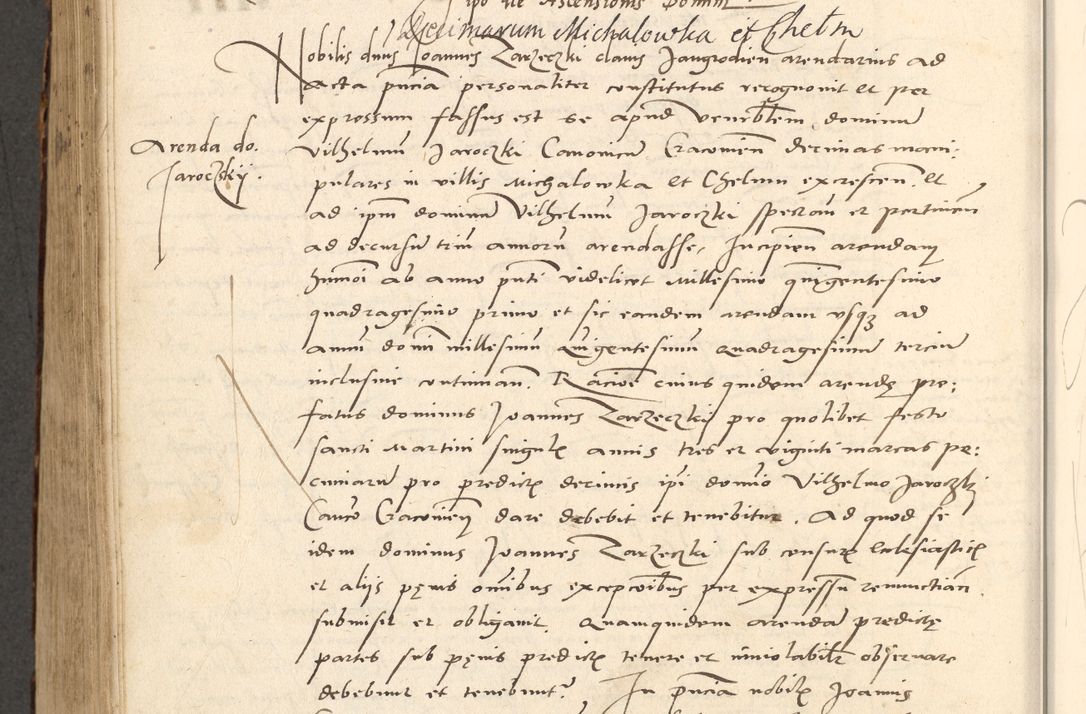 Decimarum Michalowka et Chelm
Nobilis dnus Joannes Zarzeczki clavis Jangrodien arendarius ad
acta pncia personaliter constitutus recognovit et per
expressum fassus est se apud venerbilem dominu
Vilhelmu Jaroczki Canonicu Cracovien decimas mani:
pulares in villis Michalowka et Chelmu excrescen. et
ad ipm dominu Vilhelmu Jaroczki spectan et pertinen
ad decursu triu annoru arendasse, Incipien arendam
hmoi ab anno pnti videlicet Millesimo quingentesimo
quadragesimo primo et sic eandem arendam usq3 ad
annu domi millesimu quigentesimu quadragesimu terciu
inclusive continuan. Racioe cuius quidem arendę pre:
fatus dominus Joannes Zarzeczki pro quolibet festo
sancti Martini singul annis tres et viginti marcas pe:
cuniaru pro predict decimis ipi domio Vilhelmo Jaroczki
Canco Cracovien dare debebit et tenebitur. Ad quod se
idem dominus Joannes Zarzeczki sub censur ecclesiastic
et aliis pęnis omibus excepcoibus per expressu renunctian
submisit et obligavit. Quamquidem arenda predictę
partes sub pęnis predict tenere et inviolabilr observare
debebunt et tenebunt In pncia nobil Joannis
Arenda do.
Jaroczkij.